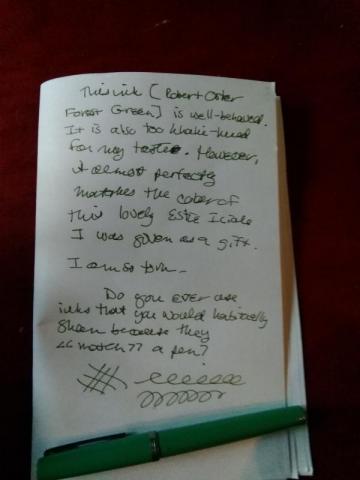 This ink [Robert Oster
Forest Green] is well-behaved.
It is also too khakie-hued
for my taste. However,
it almost perfectly
matches the color of
this lovely Estie Icicle
I was given as a gift.
I am so torn-
Do you ever use
inks that you would habitually
shun because they
<<match>> a pen?